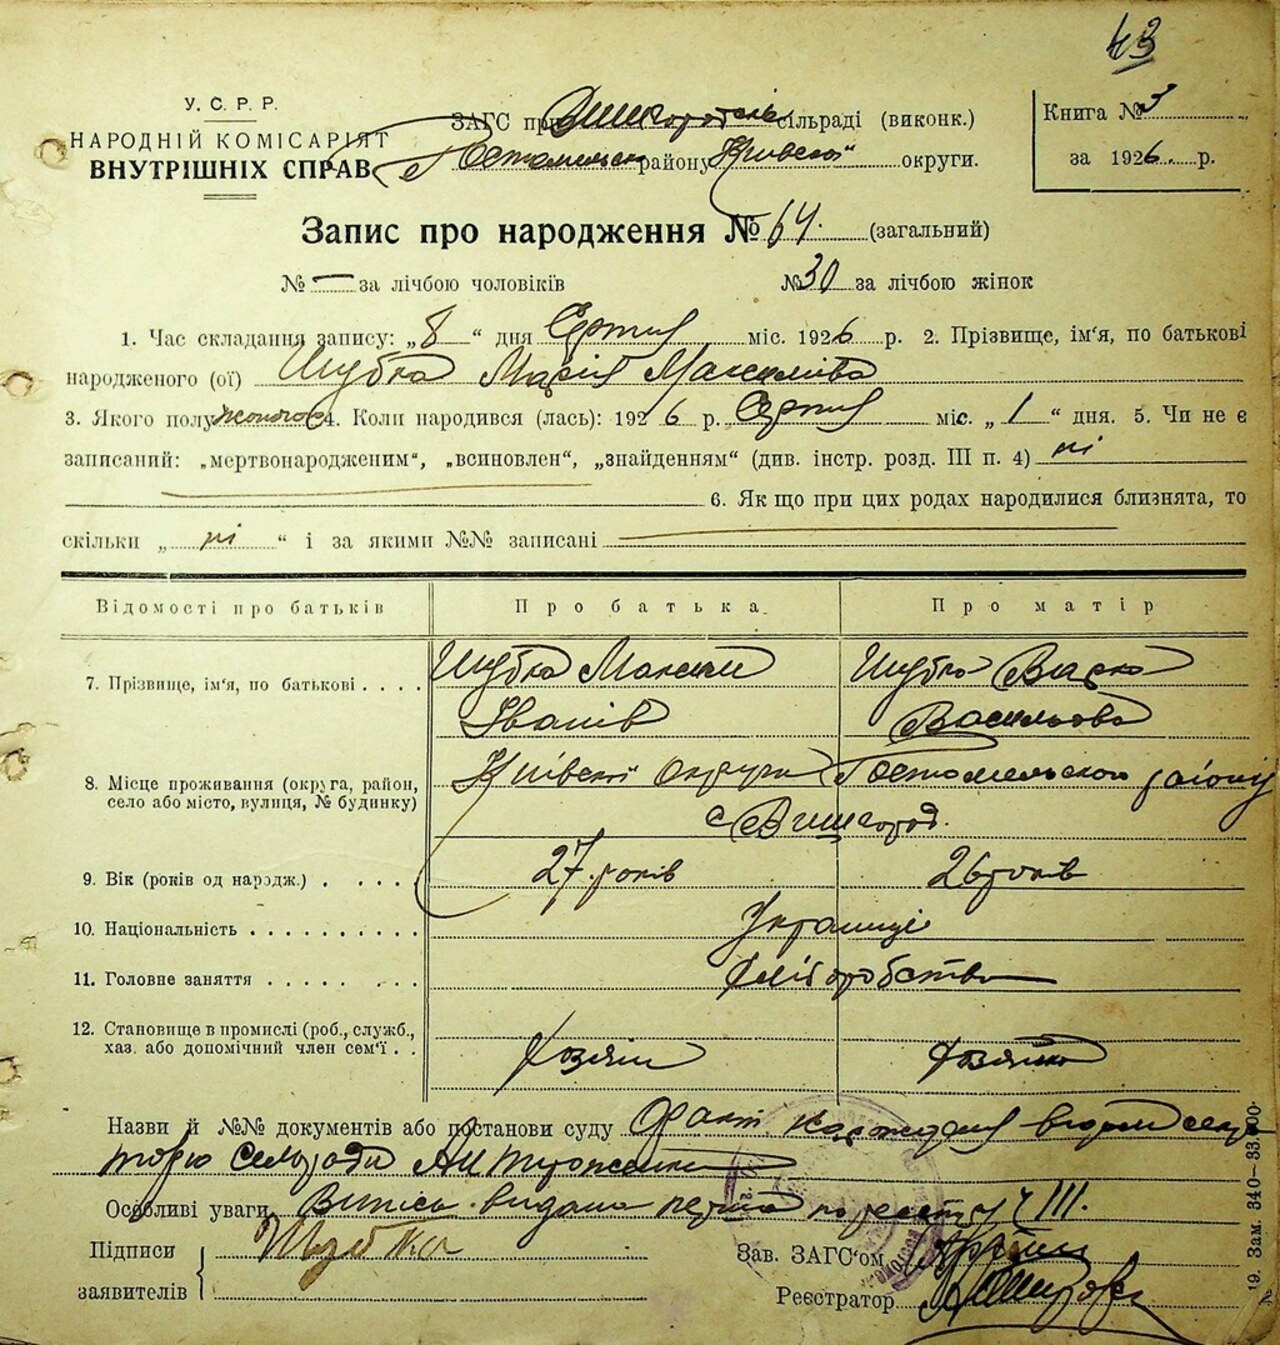 43
У. С. Р. Р.
НАРОДНІЙ КОМІСАРІЯТ
ВНУТРІШНІХ СПРАВ
ЗАГС при Вишгородскій сільраді (виконк.)
Гостомельск району Київскої округи.
Книга № 3
за 1926 р.
Запис про народження № 64. (загальний)
№ — за лічбою чоловіків № 30 за лічбою жінок
1. Час складання запису: „8“ дня Серпня міс. 1926 р. 2. Прізвище, ім‘я, по батькові
народженого (ої) Шубка Марія Максимівна
3. Якого полу жіночого 4. Коли народився (лась): 1926 р. Серпня міс. „1“ дня. 5. Чи не є
записаний: „мертвонародженим“, „всиновлен“, „знайденням“ (див. інстр. розд. III п. 4) ні
6. Як що при цих родах народилися близнята, то
скільки „ні“ і за якими №№ записані
Відомості про батьків Про батька Про матір
7. Прізвище, ім‘я, по батькові . . . . Шубка Максим Шубка Варка
Іванів Васильовна
8. Місце проживання (округа, район,
село або місто, вулиця, № будинку)
Київскої Округи Гостомельского району
с Вишгород.
9. Вік (років од народж.) . . . . 27 років 26 років
10. Національність . . . . . . . . . . Українці
11. Головне заняття . . . . . . . . . Хліборобство
12. Становище в промислі (роб., служб.,
хаз. або допомічний член сем‘ї . .
Хозяїн Хозяйка
Назви й №№ документів або постанови суду Факт народження
Сельради
Особливі уваги Випись видана перша по реестру Ч III.
Підписи
заявителів
Шубка
Зав. ЗАГС‘ом
Реєстратор
19. Зам. 340—33.000.